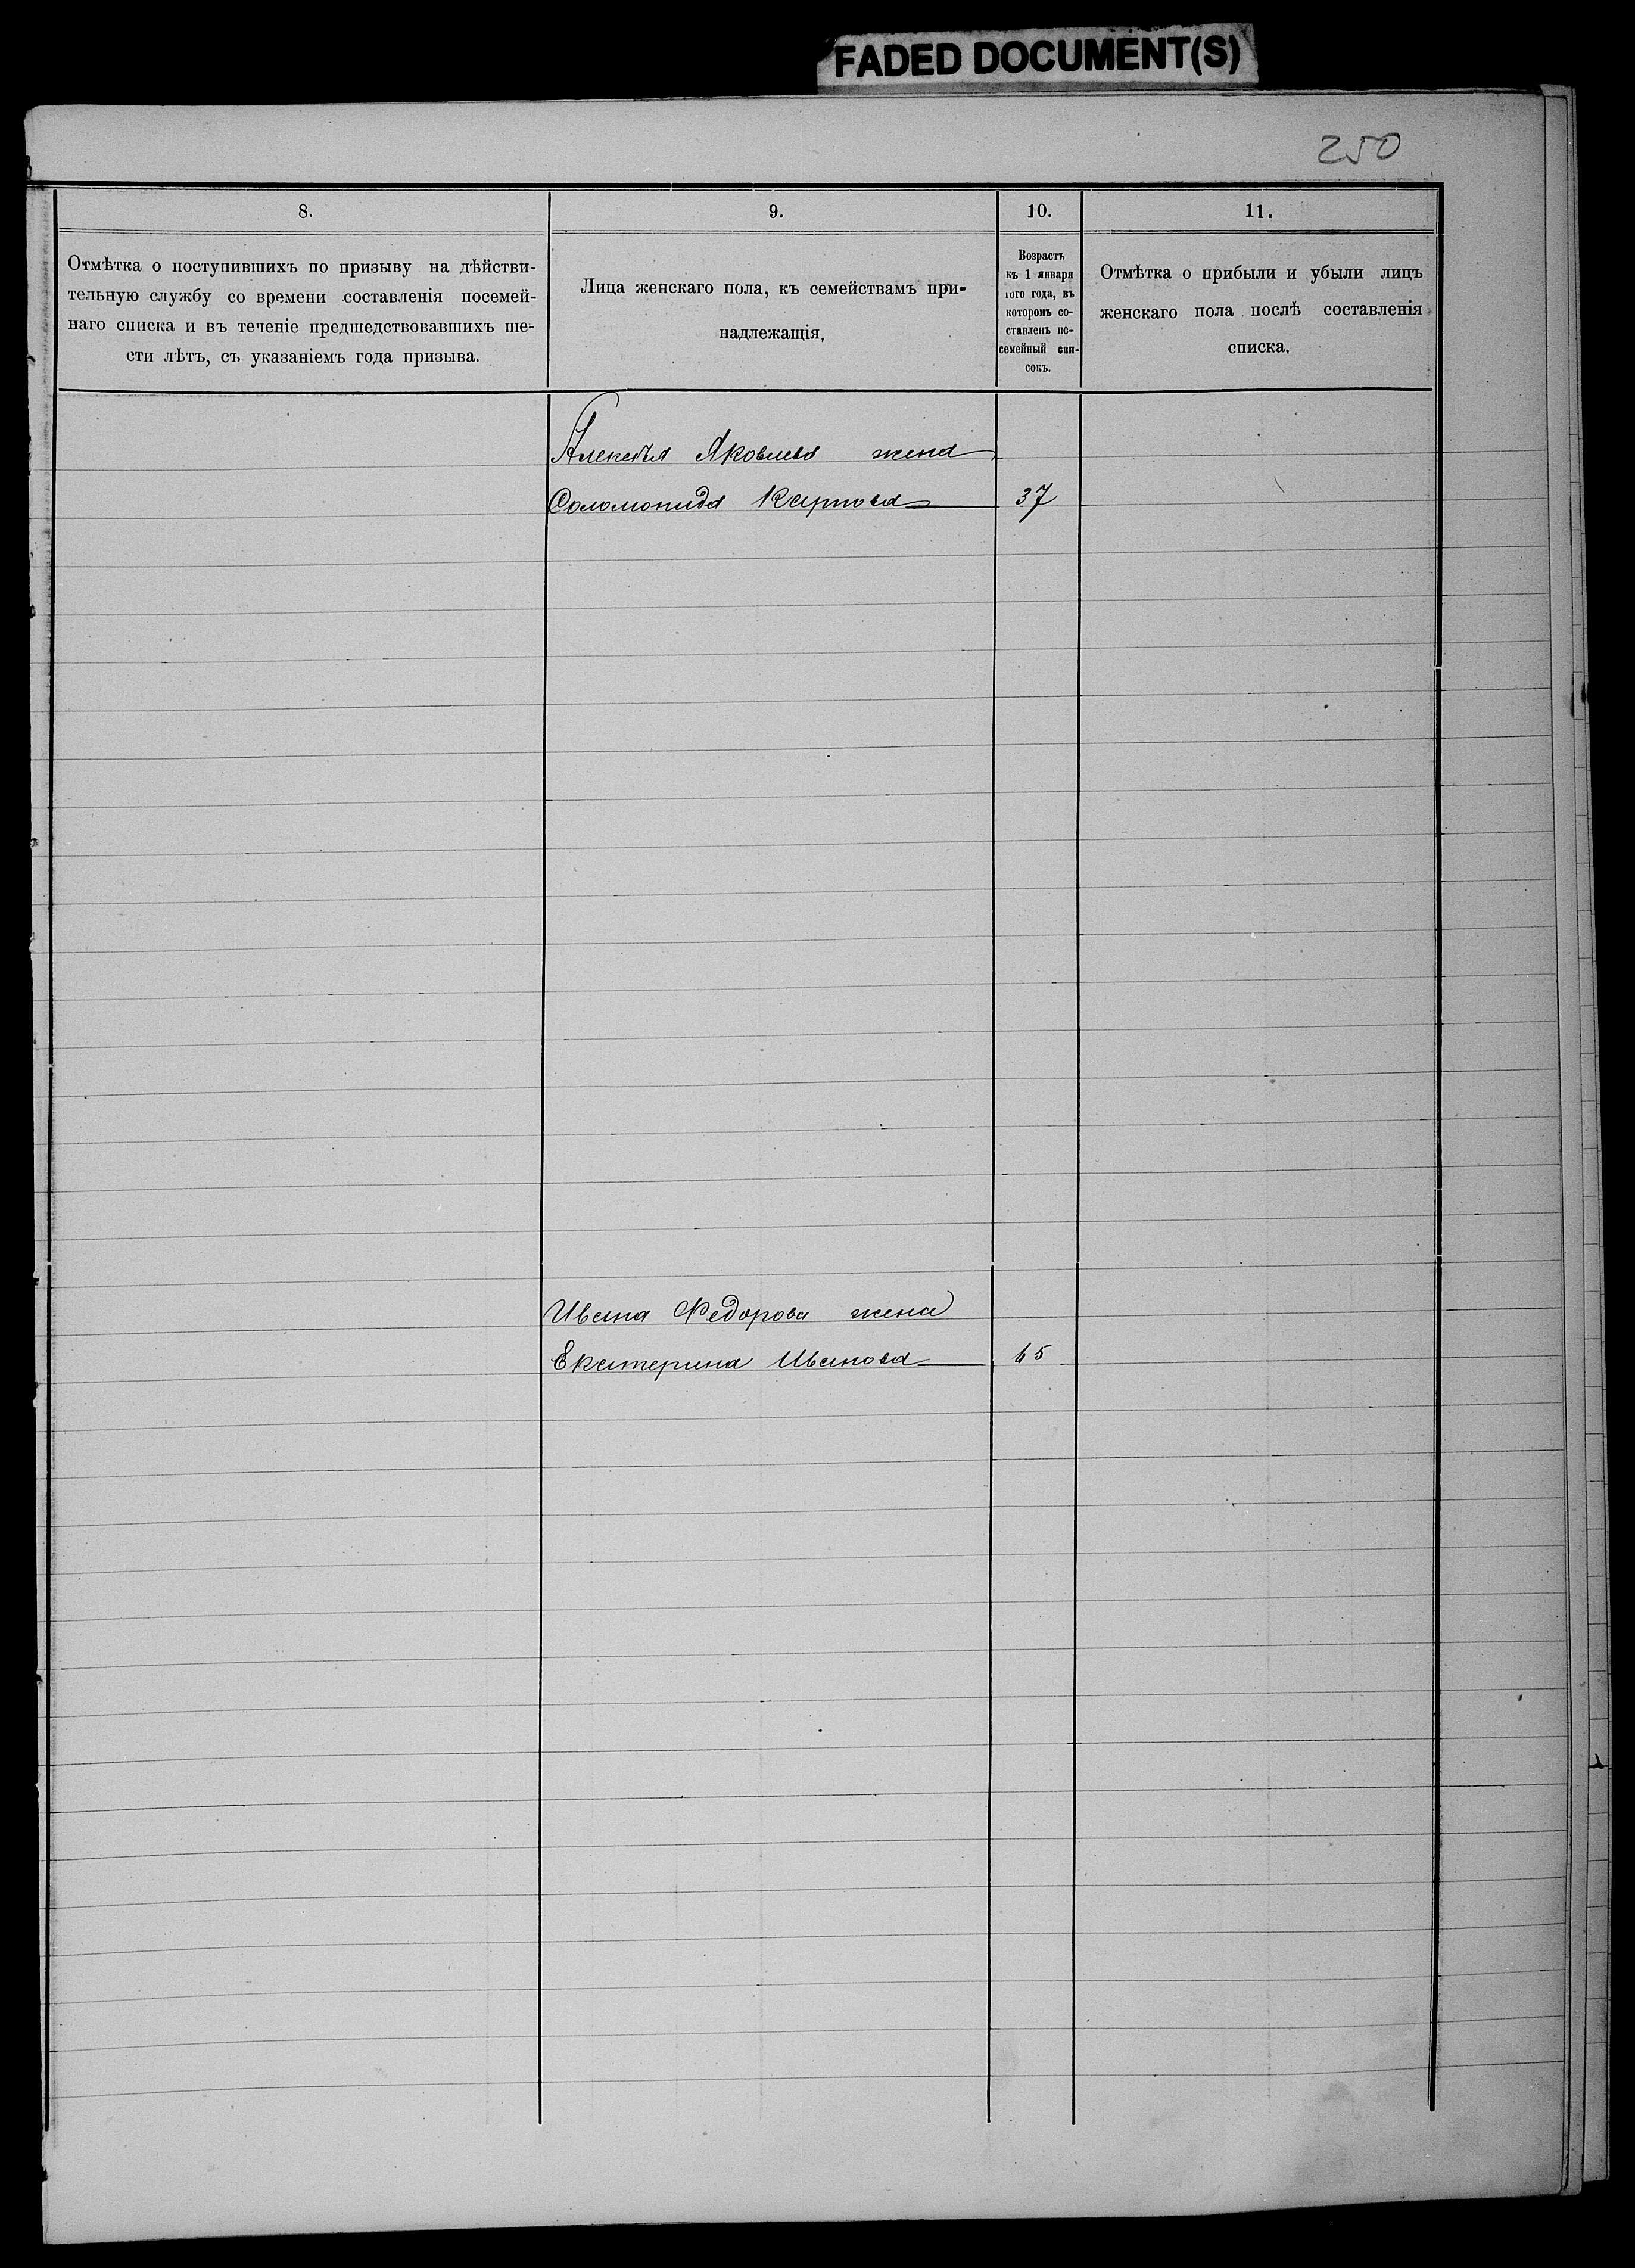 FADED DOCUMENT(S)
250
8.
Отмѣтка о поступившихъ по призыву на дѣйстви-
тельную службу со времени составленія посемей-
наго списка и въ теченіе предшедствовавшихъ ше-
сти лѣтъ, съ указаніемъ года призыва.
9.
Лица женскаго пола, къ семействамъ при-
надлежащія,
10.
Возрастъ
къ 1 января
1ого года, въ
которомъ со-
ставленъ по-
семейный спи-
сокъ.
11.
Отмѣтка о прибыли и убыли лицъ
женскаго пола послѣ составленія
списка,
Алексѣя Яковлева жена
Соломонида Карпова 37
Ивана Федорова жена
Екатерина Иванова 65